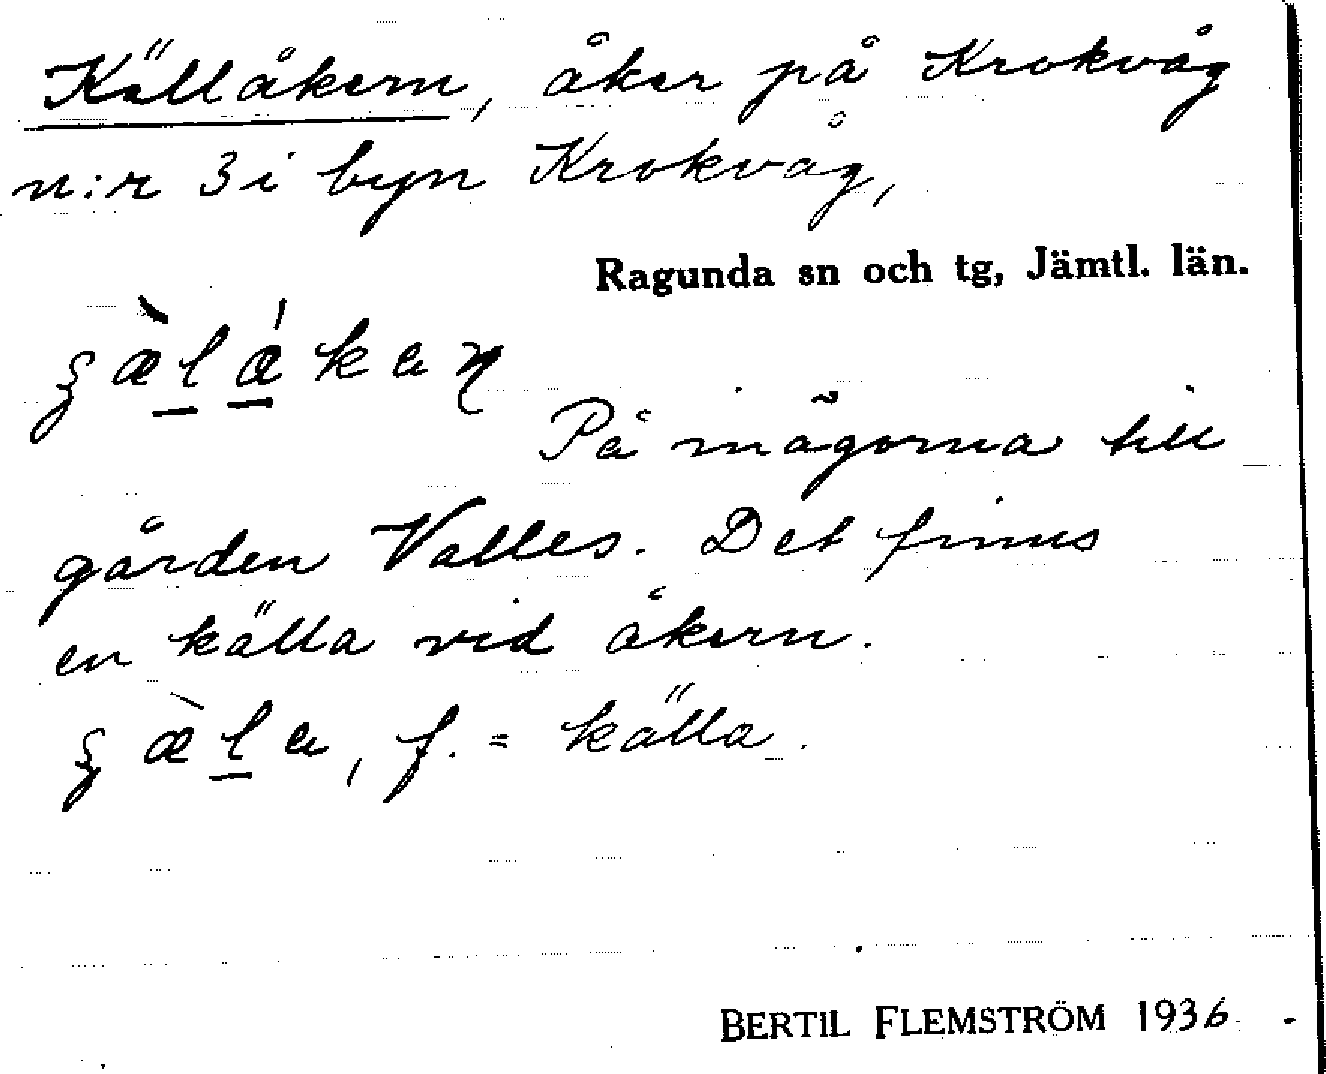 Källåkern, åker på Krokvåg
n:r 3 i byn Krokvåg,
Ragunda sn och tg, Jämtl. län.
På inägorna till
gården Valles. Det finns
en källa vid åkern.
f. = källa.
BERTIL FLEMSTRÖM 1936